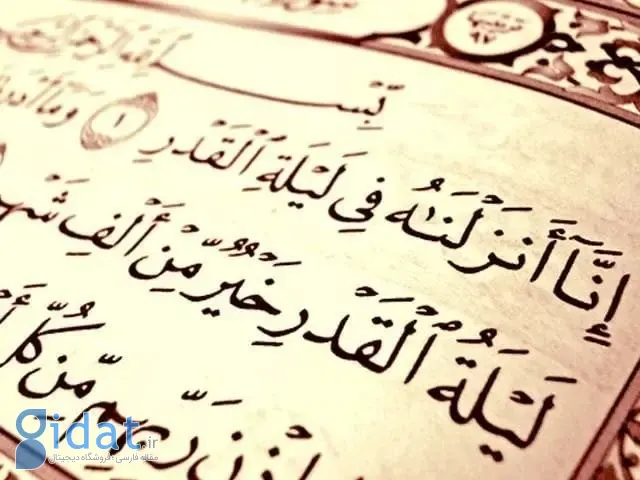 بِسْمِ اللَّهِ الرَّحْمَٰنِ
إِنَّآ أَنزَلْنَٰهُ فِي لَيْلَةِ ٱلْقَدْرِ ١ وَمَآ
لَيْلَةُ ٱلْقَدْرِ خَيْرٌ مِّنْ أَلْفِ شَهْ
رَبِّهِم مِّن كُلِّ
gidat.ir
مقاله فارسی ؛ فروشگاه دیجیتال